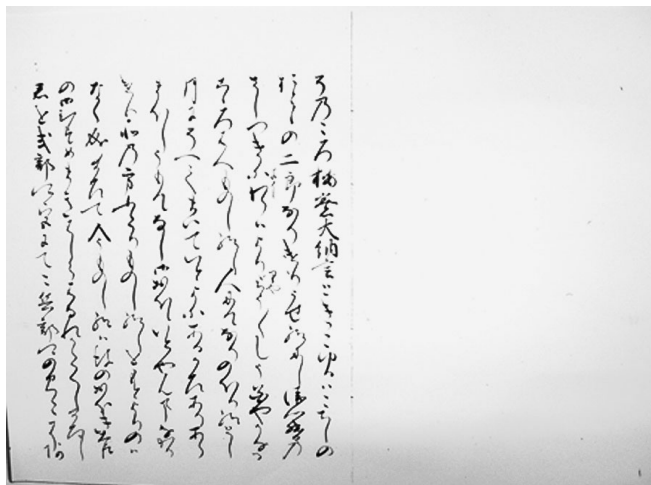 そのころ按察大納言ときこゆるはこちしの
おとゝの二郎なりうせ給にし衛門督の
さしつきよわらはよりらう〳〵しう花やかなる
心はへものし給し人にてなりのほり給とし
月にそへてまいていとよにあるかひありあら
まほしうもてなし御おほえいとやんことなかり
ける北の方ふたりものし給しをもとよりのは
なくなり給て今ものし給は後のおほきおとゝ
の御むすめまきはしらはなれかたくし給し
君を式部卿宮にて故兵部卿のみこに